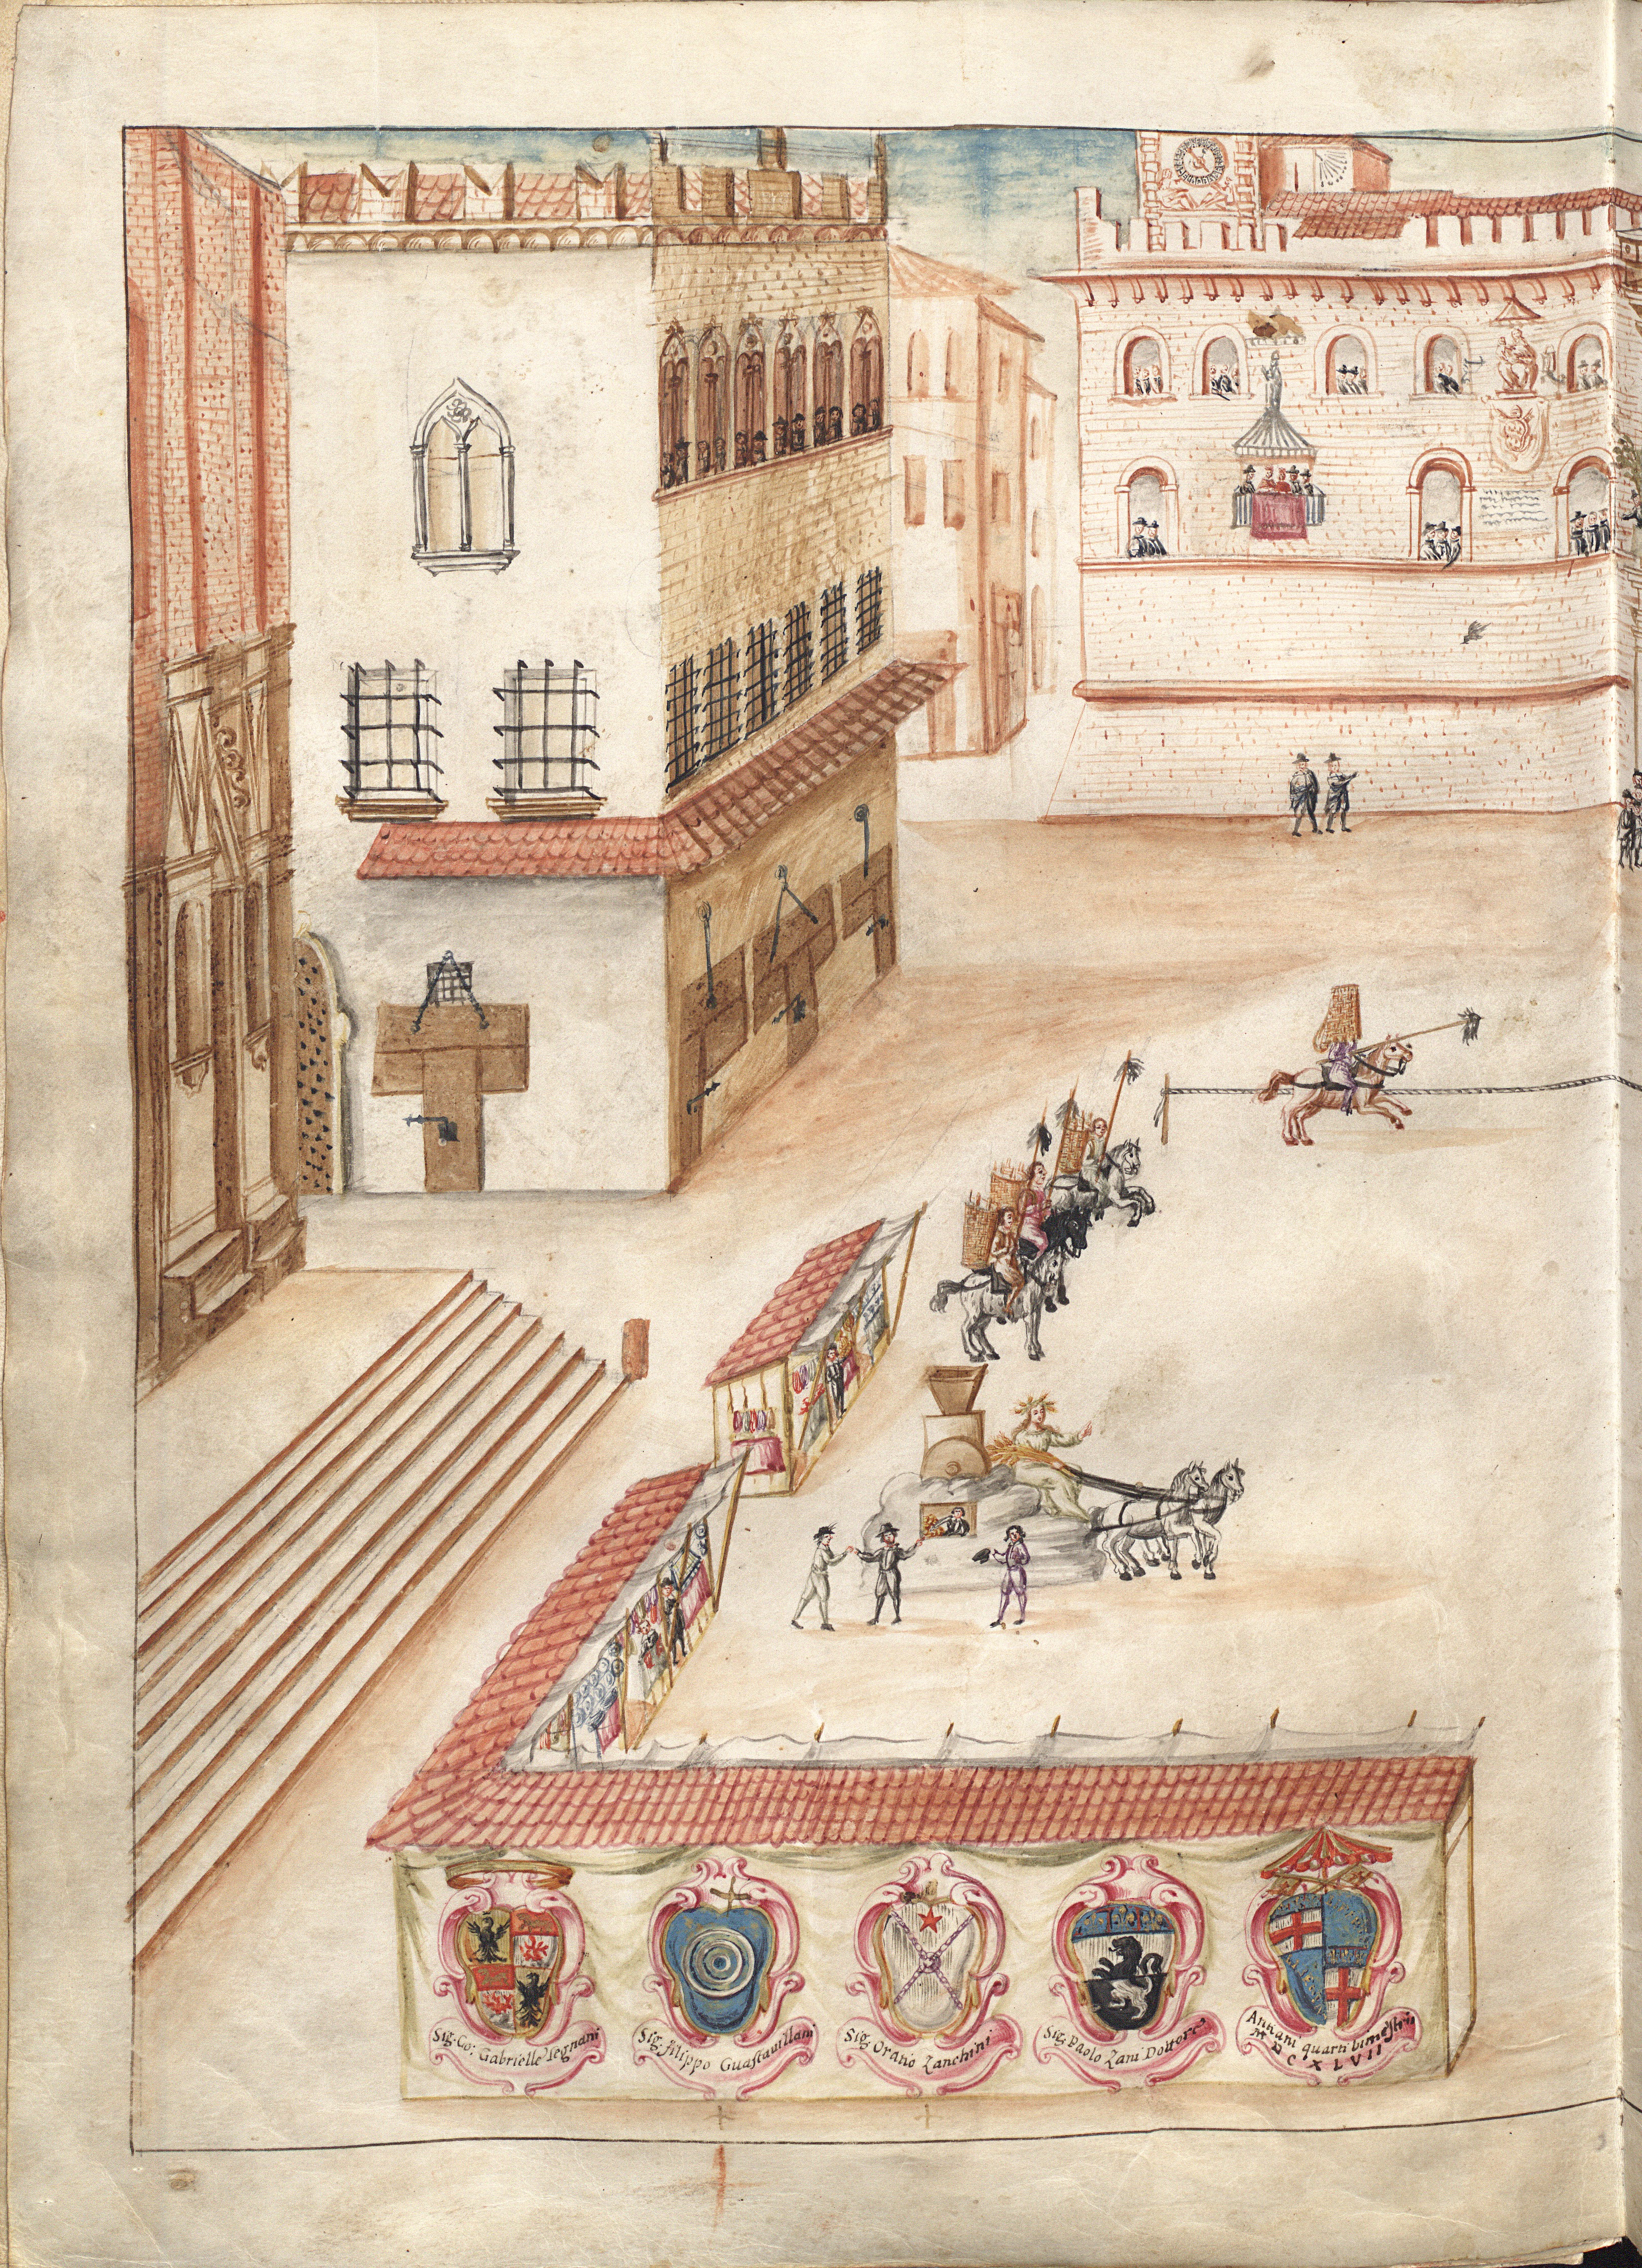 Sig. Co: Gabrielle Legnani
Sig. filippo Guastavillani
Sig. Oratio Zanchini
Sig. Paolo Zani Dottore
Antiani quarti bimestris
M DCXLVII